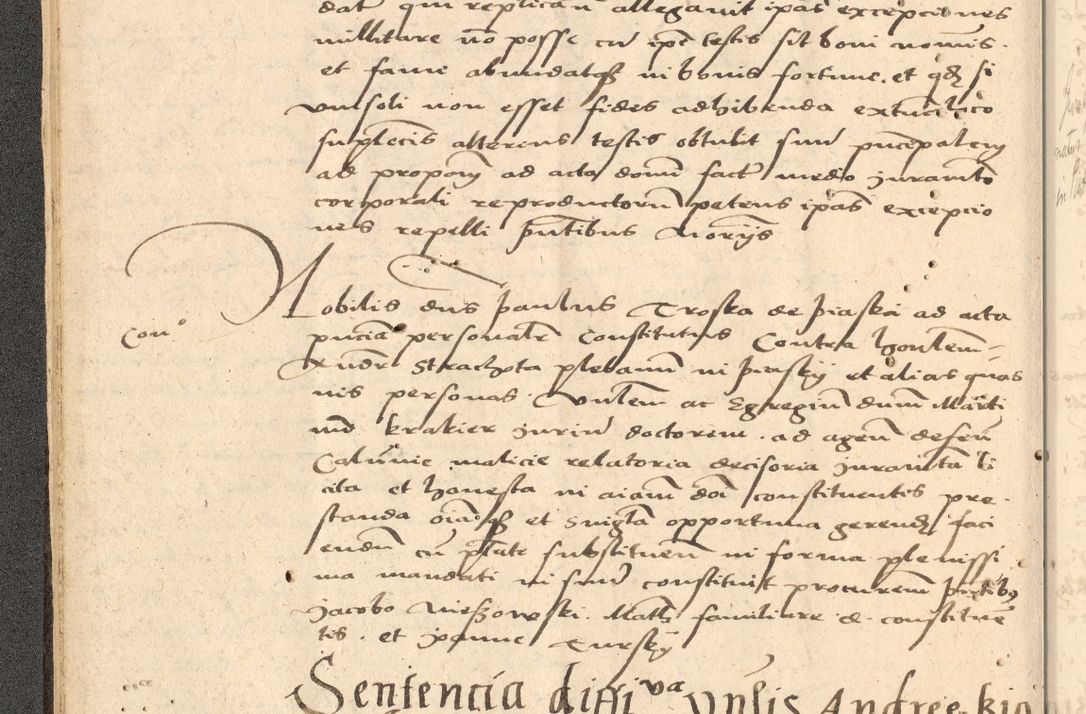 dat qui replican allegavit ipas excepciones
millitare no posse cu ipe testis sit boni nominis.
et fame abundatq in bonis fortune. et qd si
uni soli non esset fides adhibenda extunc loco
suplecis alterius testis obtulit suu principalem
ad proponm ad acta domi factu medio iuramto
corporali reproductorum petens ipas excepcio
nes repelli pntibus Notarijs
Nobilis dns paulus Troska de piaski ad acta
Con°
pncia personalr Constitutus Contra honlem
Andr Strachota plebanum in piasky et alias quas
vis personas. Vnlem ac Egregiu dnm Marti
num krakier iuriu doctorem. ad agen defen
Calunie malicie relatoria decisoria iuramta li
cita et honesta in aiam doi constituentis pre
standa oia et singla opportuna gerend faci
endu cu ptate substituen in forma plenissi
ma mandati in suu constituit procurem pntibus
Jacobo Nieszowski. Math familiare d. constitue
tis. et Joanne Tursky
Sentencia diffiva vnlis Andree kio